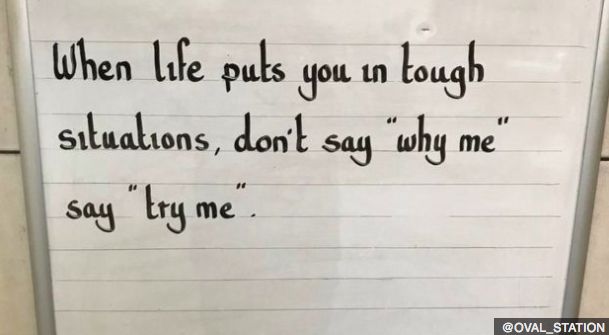 When life puts you in tough
situations, don't say "why me"
say "try me".
@OVAL_STATION